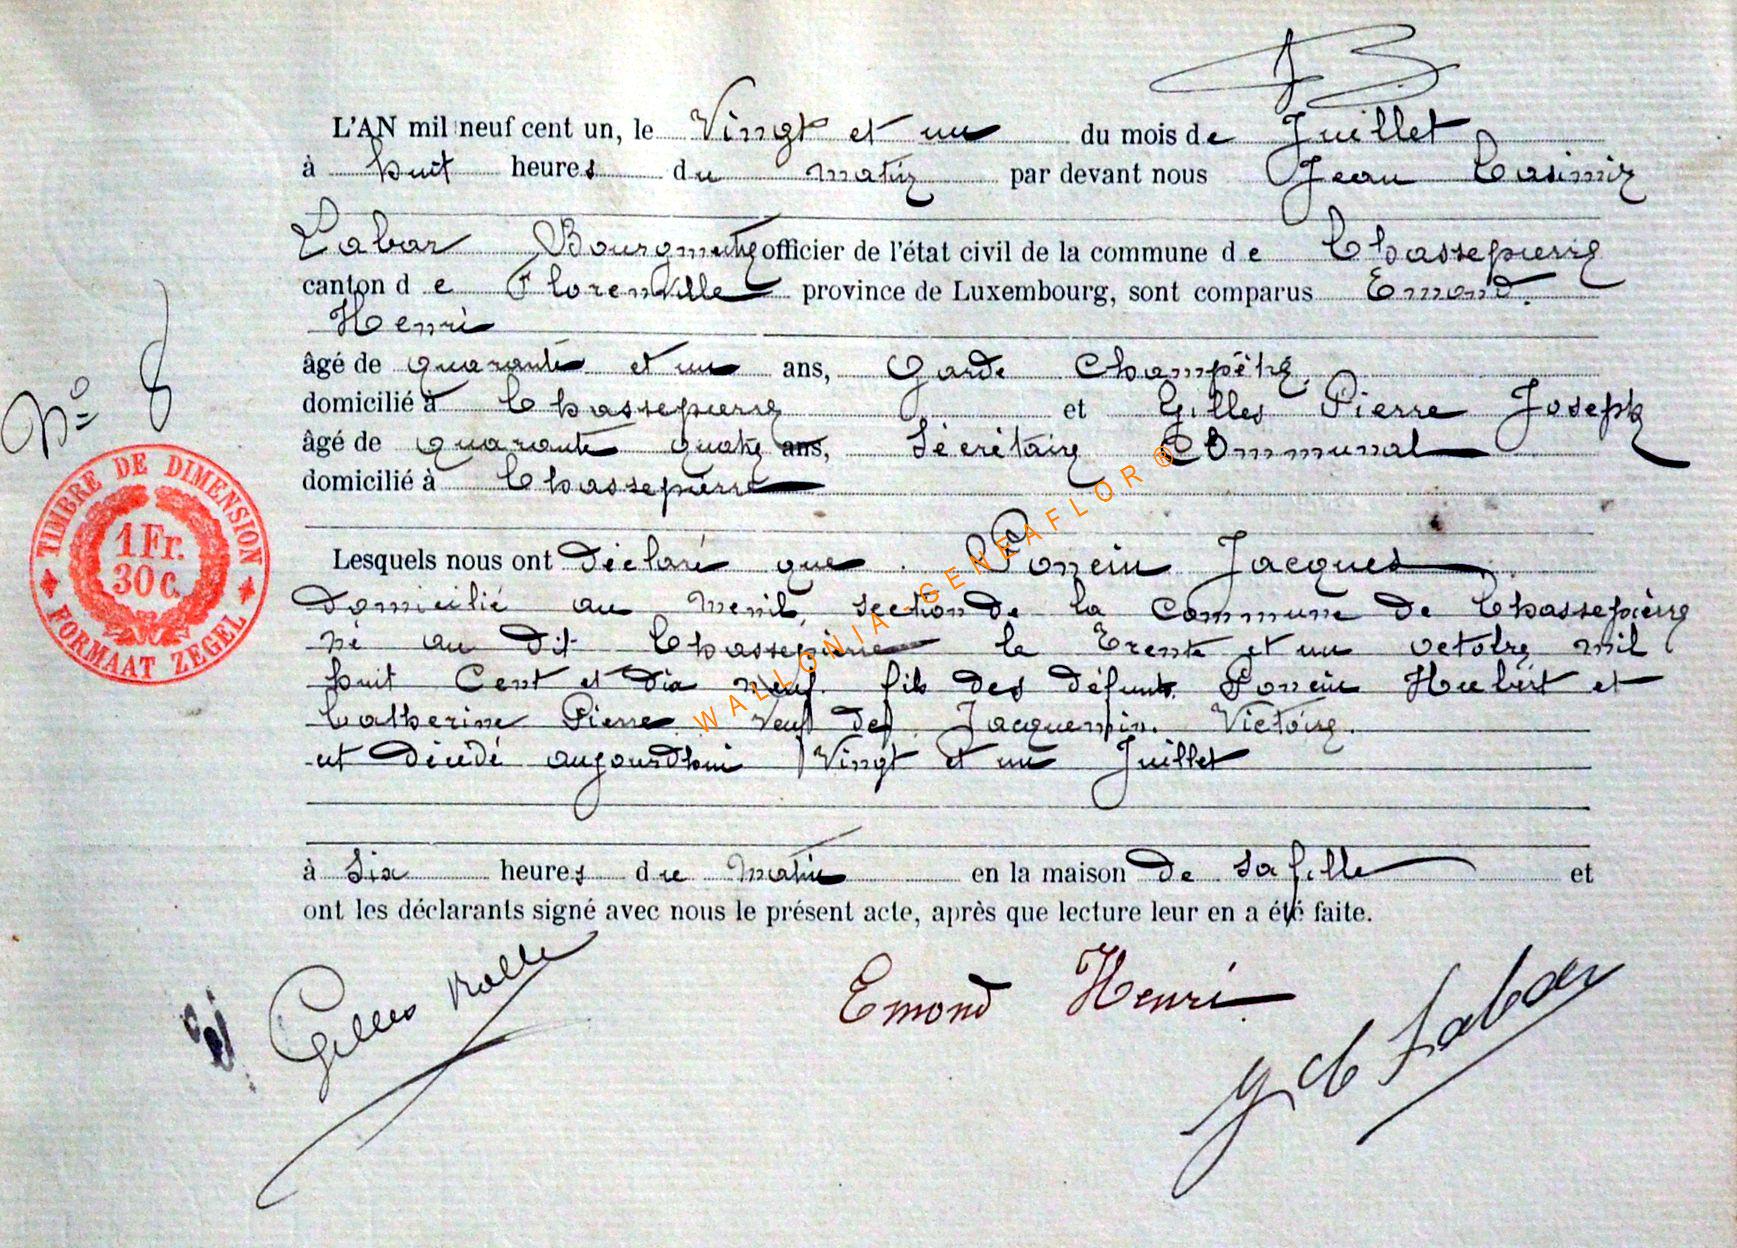 L'AN mil neuf cent un, le Vingt et un du mois de Juillet
à huit heures du matin par devant nous Jean Casimir
Labar Bourgmetre officier de l'état civil de la commune de Chassepierre
canton de Florenville province de Luxembourg, sont comparus Emond
Henri
âgé de quarante et un ans, Garde Champêtre
N° 8
domicilié à Chassepierre et Gilles Pierre Joseph
âgé de quarante quatre ans, Sécrétaire Communal
domicilié à Chassepierre
TIMBRE DE DIMENSION
1 Fr.
30 c.
FORMAAT ZEGEL
Lesquels nous ont déclaré que Poncin Jacques
domicilié au Menil, section de la commune de Chassepierre
né au dit Chassepierre le Trente et un octobre mil
huit Cent et dix neuf. fils des défunts Poncin Hubert et
Catherine Pierre Veuf de Jacquemin. Victoire.
est décédé aujourdhui Vingt et un Juillet
à six heures du matin en la maison de sa fille et
ont les déclarants signé avec nous le présent acte, après que lecture leur en a été faite.
Gilles Emond Henri J C Labar
WALLONIA-GENEAFLOR ®